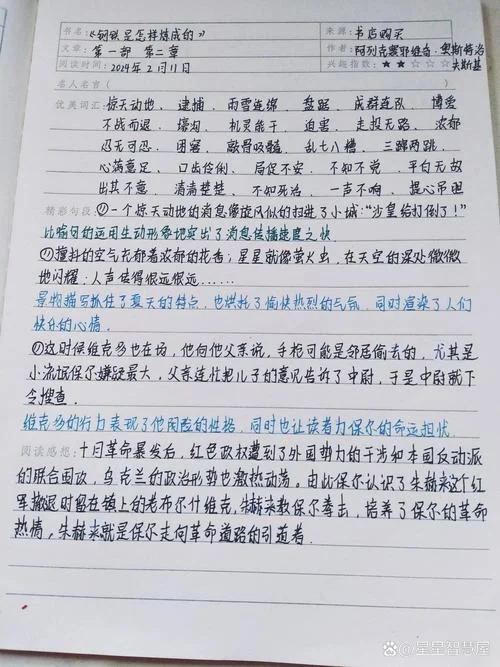 书名：《钢铁是怎样炼成的》 来源：书店购买
文章：第一部 第二章 作者：阿列克塞耶维奇·奥斯特洛夫斯基
阅读时间：2024年2月11日 兴趣指数：★★☆☆☆
名人名言（ ）
优美词汇：惊天动地、逮捕、雨雪连绵、盘踞、成群连队、博爱
不战而退、壕沟、机灵能干、迫害、走投无路、浓郁
忍无可忍、团窝、敲骨吸髓、乱七八糟、三蹿两跳、
心满意足、口齿伶俐、局促不安、不知不觉、平白无故
出其不意、清清楚楚、不知死活、一声不响、提心吊胆
精彩句段：①一个惊天动地的消息像旋风似的扫进了小城："沙皇给打倒了！"
比喻句的运用生动形象地突出了消息传播速度之快.
①撞抖的空气充郁着浓郁的花香；星星就像萤火虫，在天空的深处微微
地闪耀；人声传得很远很远……
景物描写抓住了夏天的特点，也烘托了愉快热烈的气氛，同时渲染了人们
快乐的心情.
①这时候维克多也在场，他向他父亲说，手枪可能是邻居偷去的，尤其是
小流氓保尔嫌疑最大，父亲连忙把儿子的意见告诉了中尉，于是中尉就下
令搜查.
维克多的行为表现了他阴险的性格，同时也让读者为保尔的命运担忧.
阅读感想：十月革命暴发后，红色政权遭到了外国势力的干涉和本国反动派
的联合围攻，乌克兰的政治形势也激热动荡。由此保尔认识了朱赫来这个红
军撤退时留在镇上的老布尔什维克，朱赫来教保尔拳击，培养了保尔的革命
热情，朱赫来就是保尔走向革命道路的引道者.
星星智慧屋